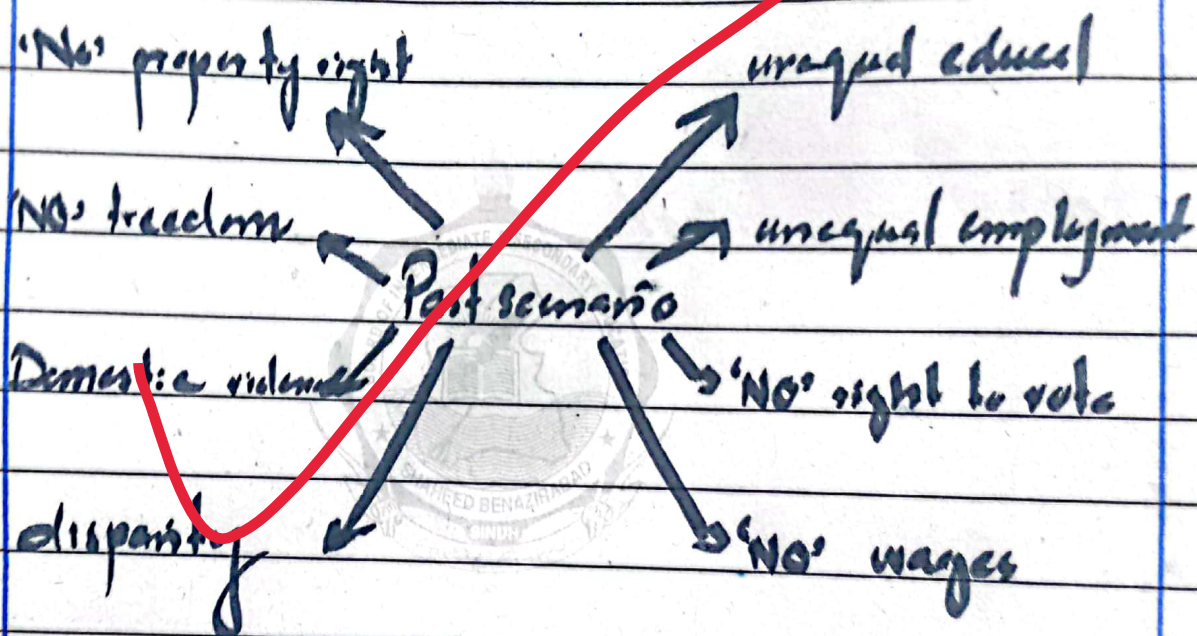 'No' property right unequal educal
'NO' freedom unequal employment
Past scenario
Domestic violence 'NO' right to vote
disparity 'NO' wages
SHAHEED BENAZIRABAD
SINDH